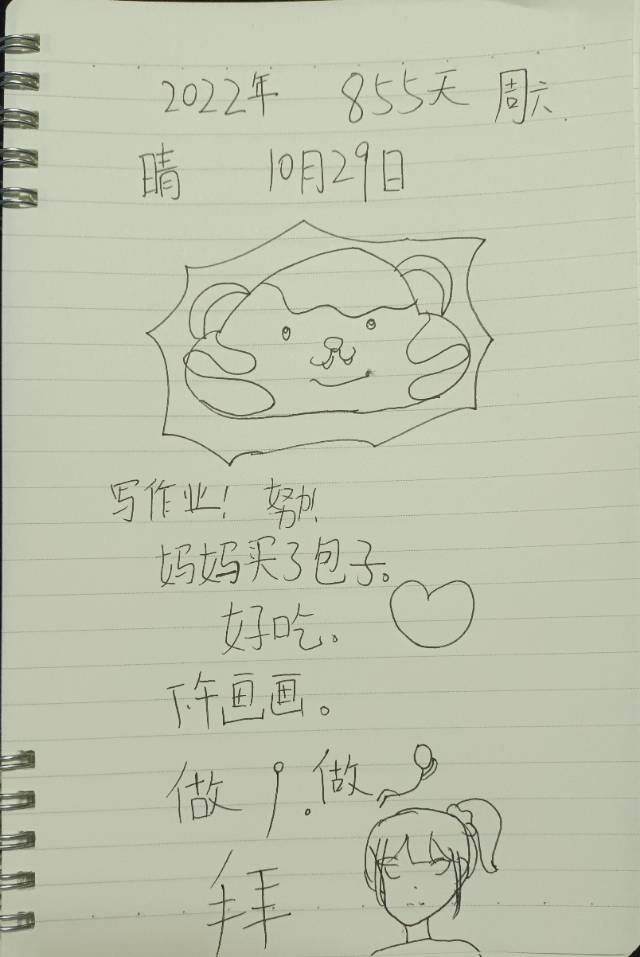 2022年 855天 周六
晴 10月29日
写作业！ 努力！
妈妈买了包子。
好吃。
下午画画。
做 。做
拜